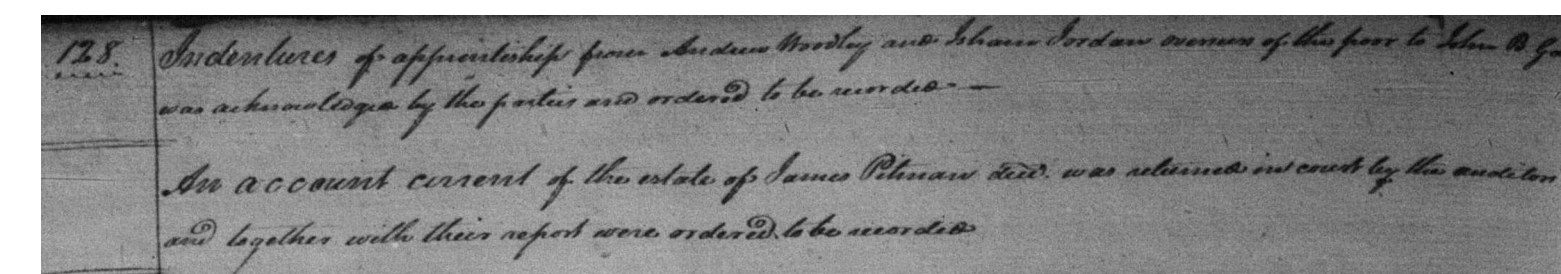 128. Indentures of apprentiship from Andrew Woodley and Isham Jordan overseers of the poor to John B
was acknowledged by the parties and ordered to be recorded
An account current of the estate of James Pitman decd. was returned in court by the auditors
and together with their report were ordered to be recorded